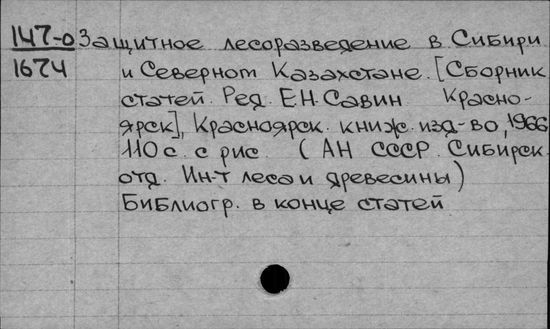 147-о Защитное лесоразведение в Сибири
1674 и Северном Казахстане. [Сборник
статей. Ред. Е.Н. Савин Красно-
ярск], Красноярск. книж. изд-во, 1966
110 с. с рис. (АН СССР. Сибирск.
отд. Ин-т леса и древесины)
Библиогр. в конце статей